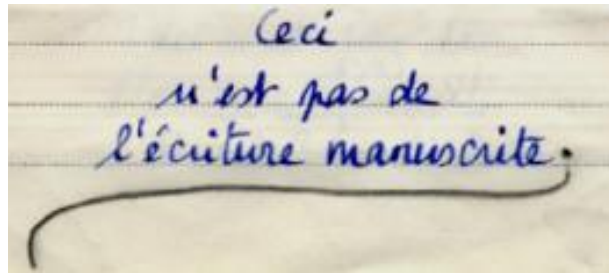 Ceci
n'est pas de
l'écriture manuscrite.